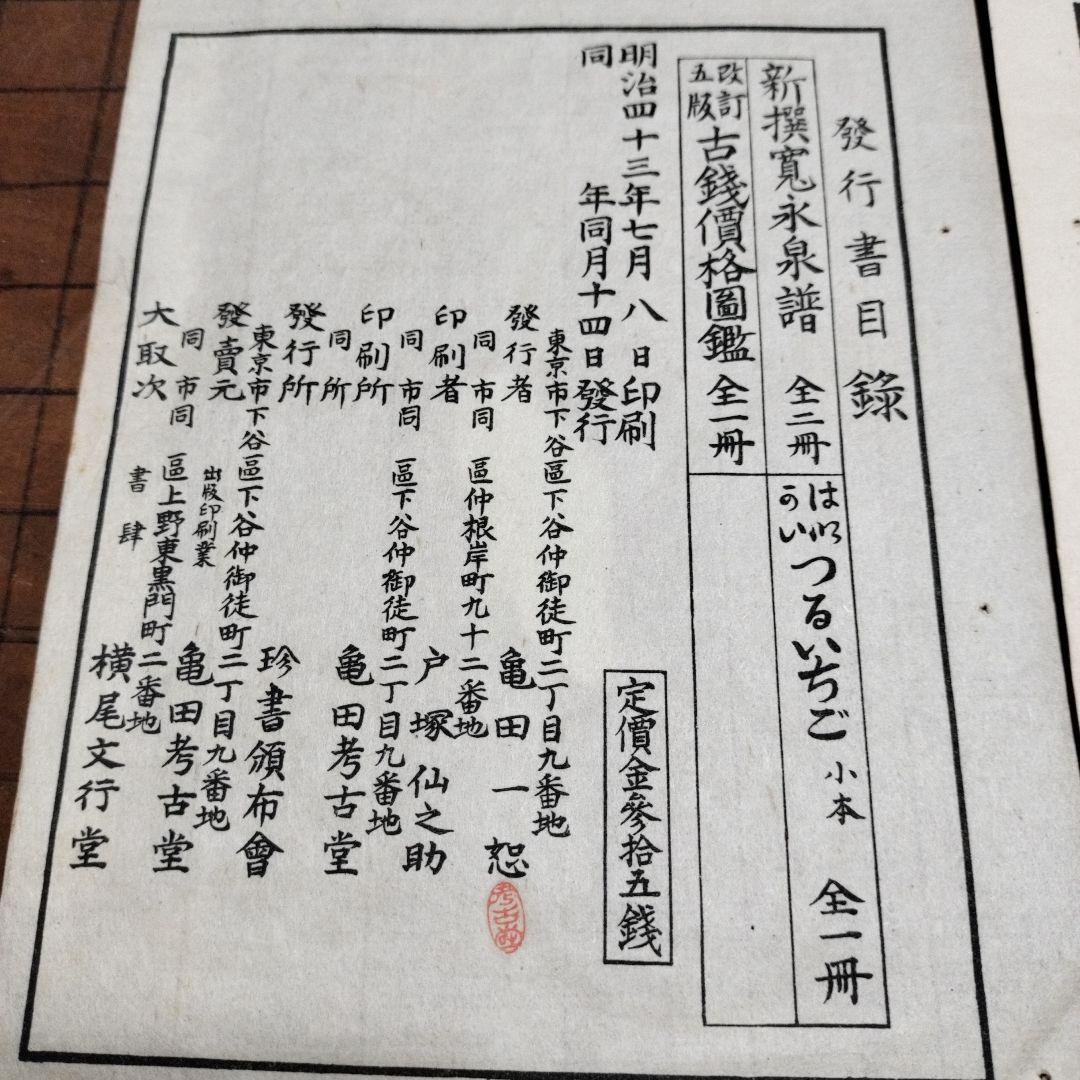 發行書目錄
新撰寬永泉譜 全二冊
改訂五版 古錢價格圖鑑 全一冊
つるいちご 小本 全一冊
明治四十三年七月八日印刷
同年同月十四日發行
定價金參拾五錢
東京市下谷區下谷仲御徒町二丁目九番地
發行者 亀田一恕
考古堂
同市同區仲根岸町九十二番地
印刷者 戸塚仙之助
同市同區下谷仲御徒町二丁目九番地
印刷所 亀田考古堂
同所
發行所 珍書頒布會
東京市下谷區下谷仲御徒町二丁目九番地
發賣元 出版印刷業 亀田考古堂
同市同區上野東黒門町二番地
大取次 書肆 横尾文行堂